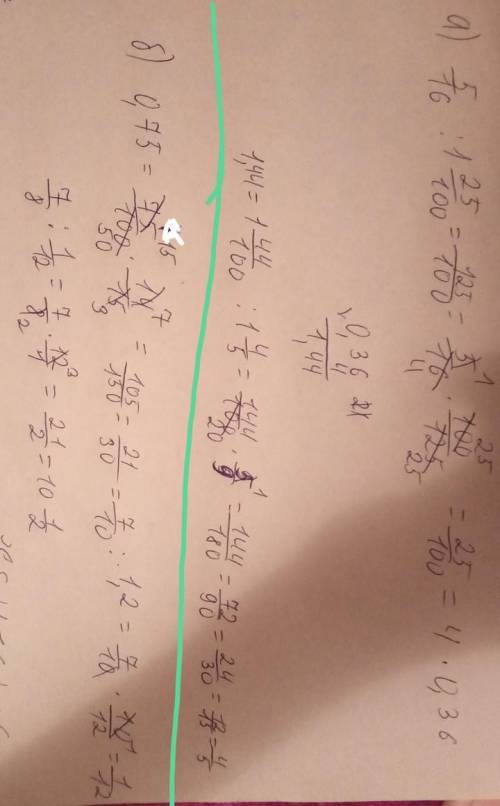 а) 5/16 : 1 25/100 = 125/100 = 5/16 4 · 1 100/125 25 25 = 25/100 = 4 · 0,36
0,36
4
1,44
1,44 = 1 44/100 : 1 4/5 = 144/100 20 · 5/9 1 = 144/180 = 72/90 = 24/30 = 12/15 = 4/5
б) 0,75 = 75/100 15 50 · 14/15 7 9 = 105/150 = 21/30 = 7/10 : 1,2 = 7/10 · 10/12 1 = 1/12
7/8 : 1/12 = 7/8 2 · 12/1 3 = 21/2 = 10 1/2